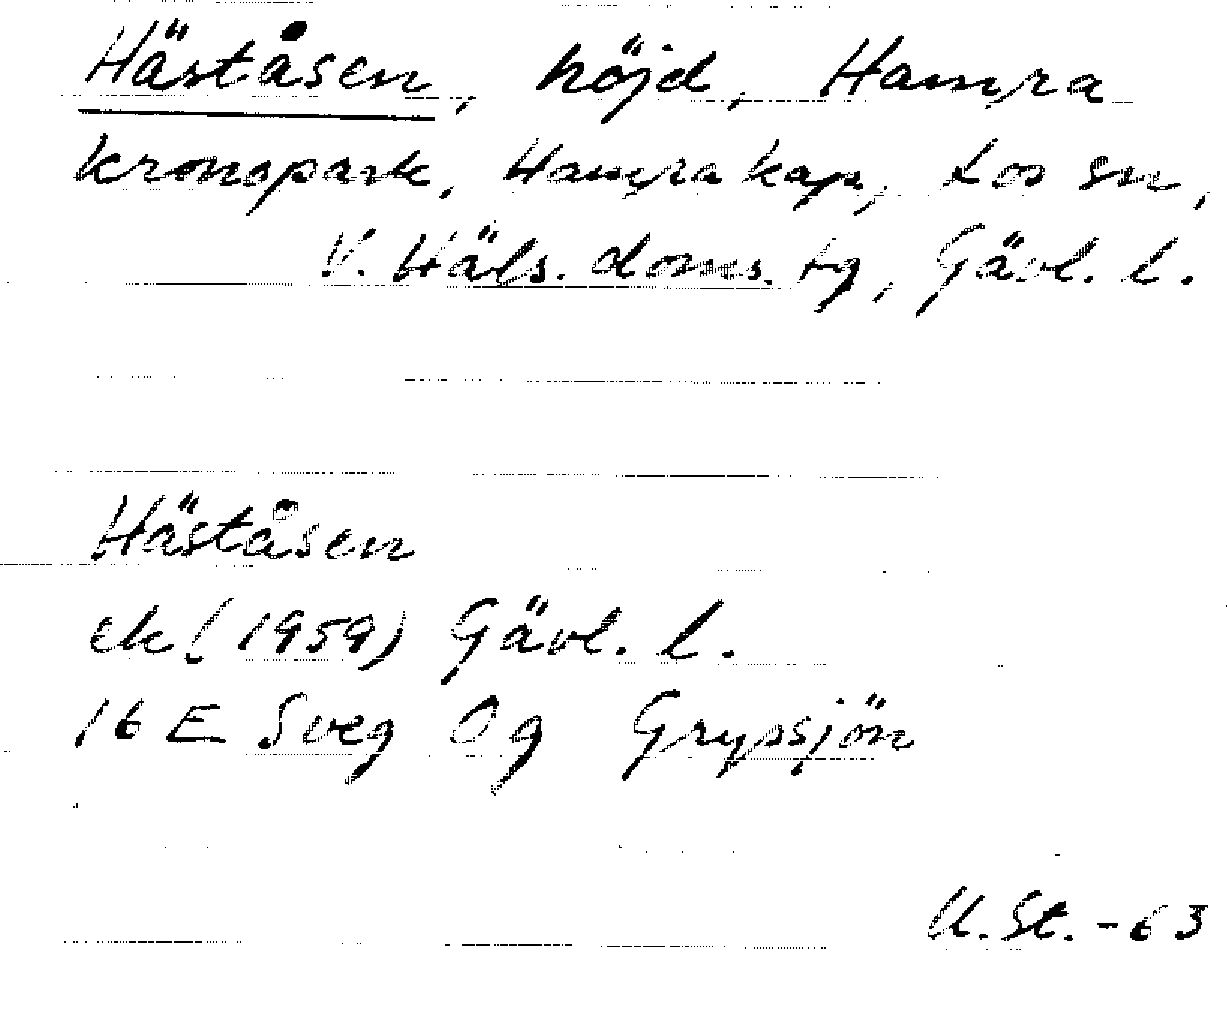 Häståsen, höjd, Hamra
kronopark, Hamra kap, Los sn,
V. Häls. doms. tg, Gävl. l.
Häståsen
ek (1959) Gävl. l.
16 E Sveg 0g Grypsjön
U. St. -63